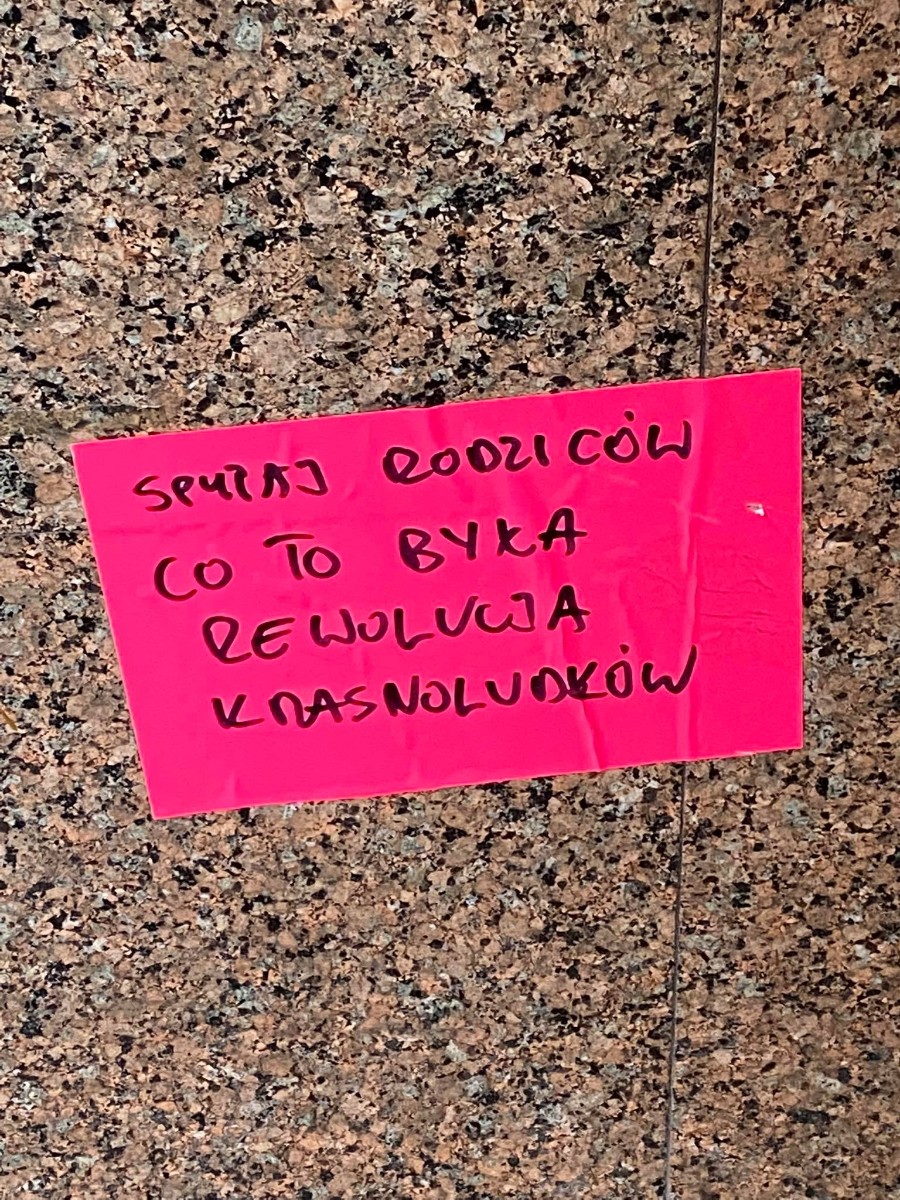 SPYTAJ RODZICÓW
CO TO BYŁA
REWOLUCJA
KRASNOLUDKÓW